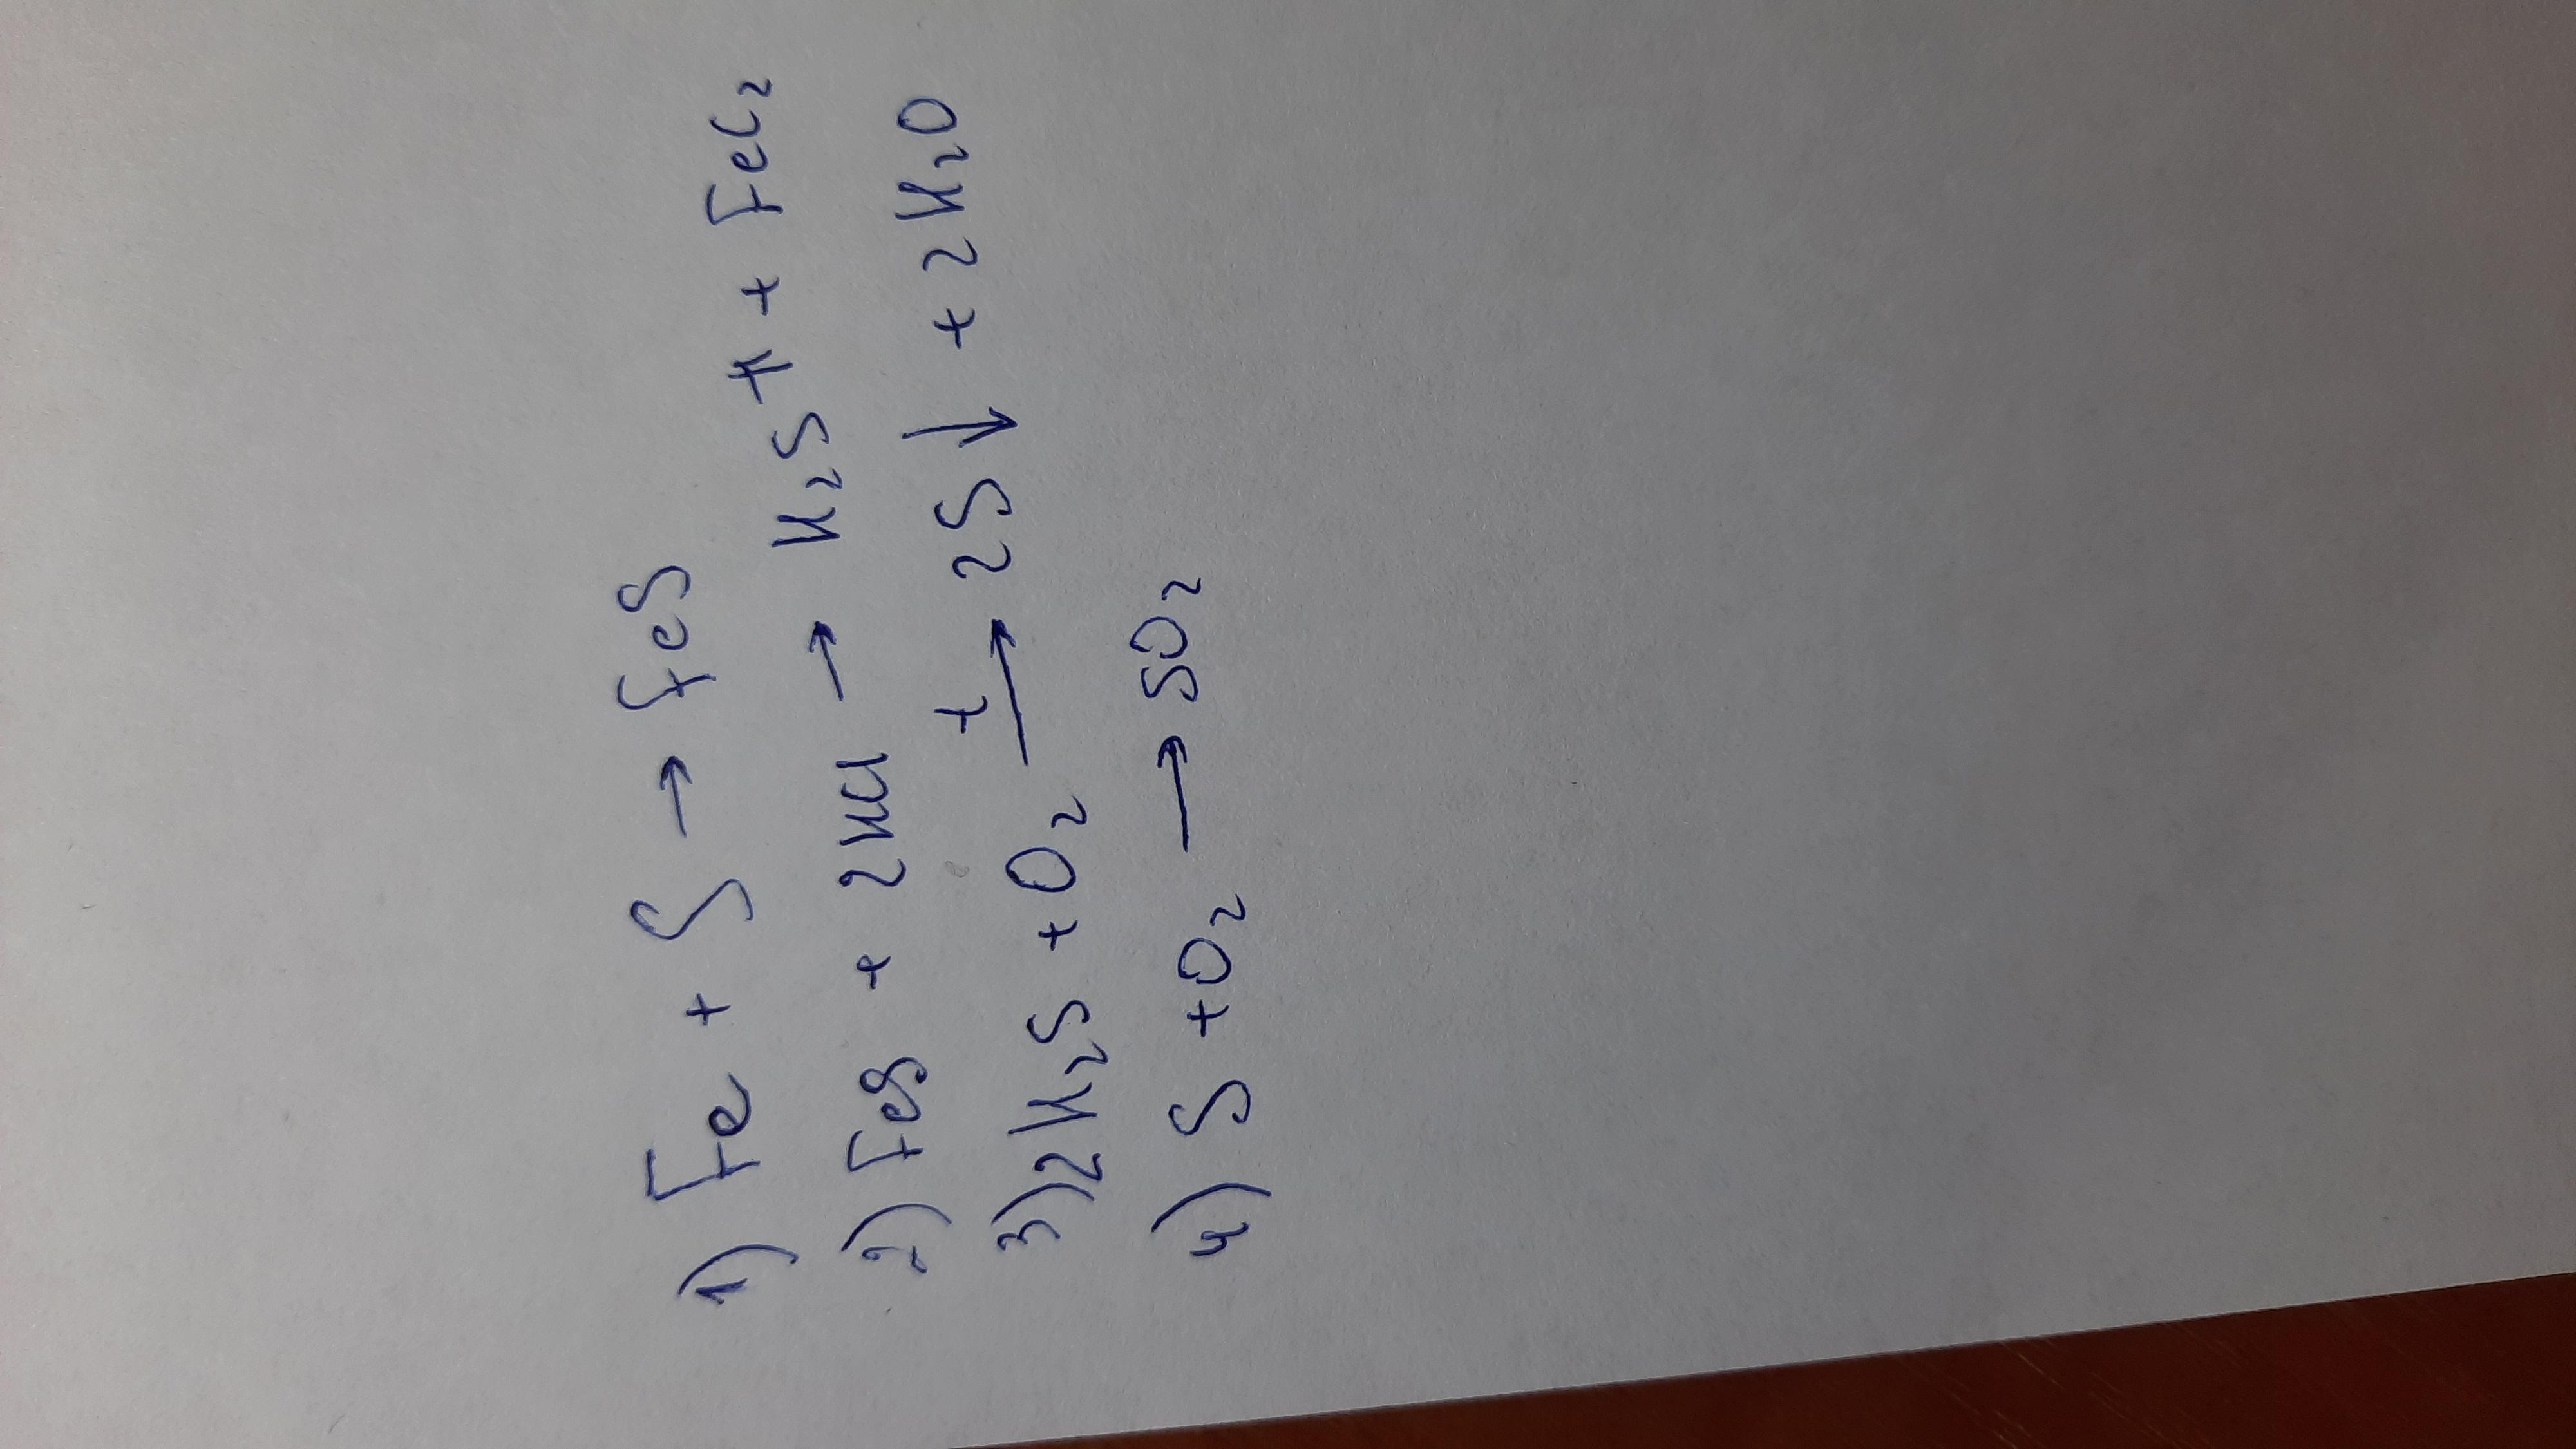 1) Fe + S → FeS
2) FeS + 2HCl → H₂S↑ + FeC₂
3) 2H₂S + O₂ —t→ 2S↓ + 2H₂O
4) S + O₂ → SO₂